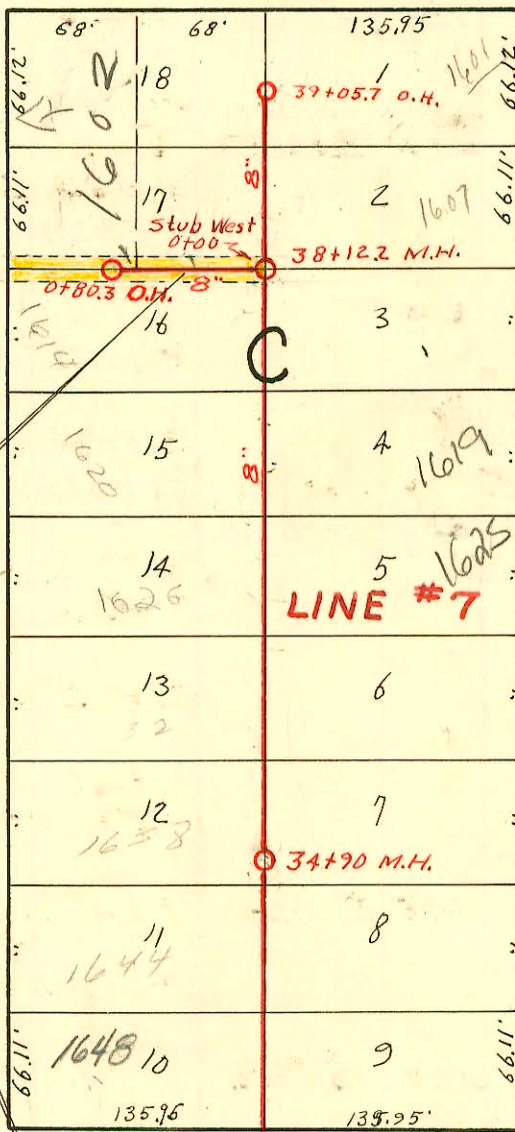 68' 68' 135.95
66.12' 1602 18 1 1601 66.12'
39+05.7 O.H.
8"
66.11' 17 2 1607 66.11'
Stub West
0+00
38+12.2 M.H.
0+80.3 O.H. 8"
1614 16 3
C
1620 15 8" 4 1619
14 5 1625
1626
LINE #7
13 6
32
12 7
1638
34+90 M.H.
11 8
1644
66.11' 1648 10 9 66.11'
135.96 135.95'